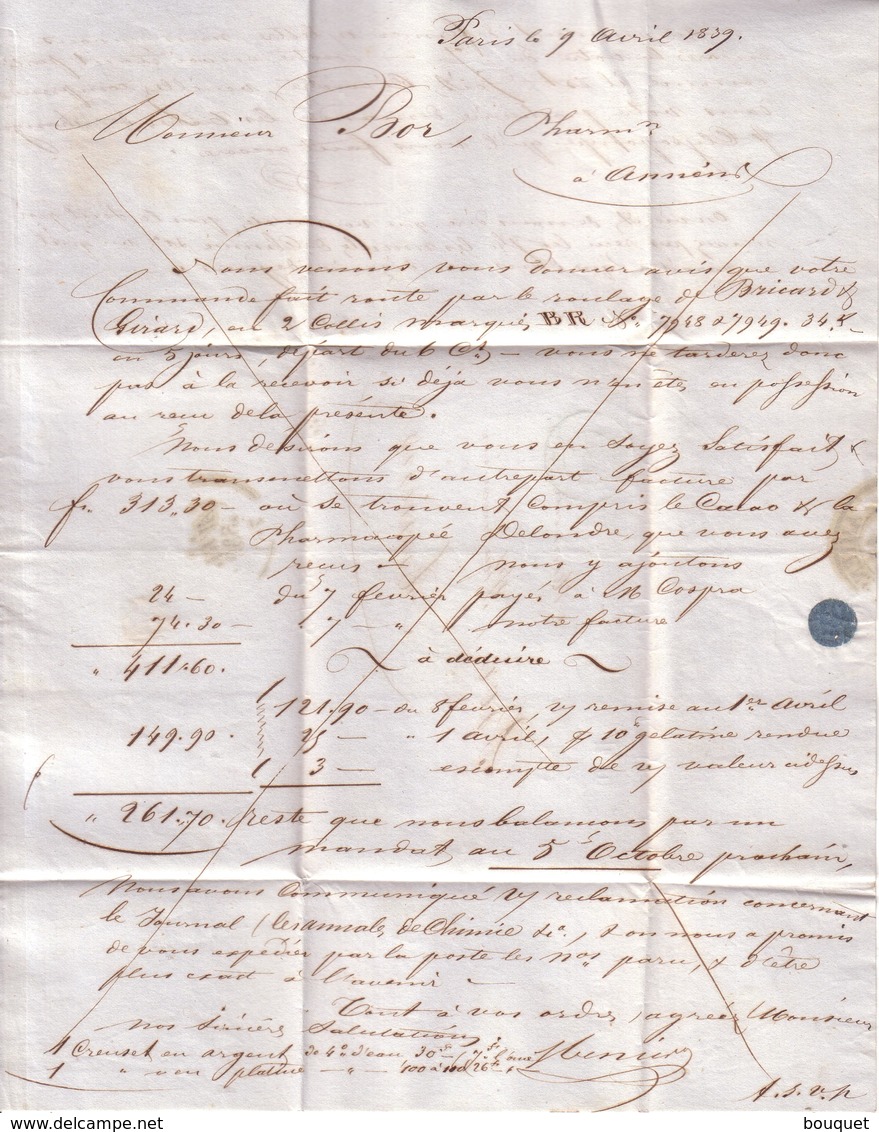 Paris le 9 Avril 1839.
Monsieur Bor, Pharmn
à Amiens
Nous venons vous donner avis que votre
Commande fait route par le roulage de Bricard &
Girard, en 2 Collis marqués BR No 7948 à 7949. 34 K
en 3 jours, départ du 6 Ct – vous ne tarderez donc
pas à la recevoir si déjà vous n'en etes en possession
au recu de la présente.
Nous desirons que vous en soyez Satisfait &
vous transmettons d'autrepart facture par
fr. 313,,30 – où se trouvent compris le Cacao & la
Pharmacopée Delondre, que vous avez
recus – nous y ajoutons
24 – du 7 fevrier payé à M Cospra
74.30 – " 7 – " notre facture
" 411.60. à déduire
121.90 – du 8 fevrier, remise au 1er Avril
149.90. 25 – " 1 avril, 10 gelatine rendue
3 – escompte de valeur
" 261.,70. reste que nous balancons par un
mandat au 5 Octobre prochain,
Nous avons Communiqué reclamation concernant
le Journal (les annales de Chimie & on nous a promis
de vous expédier par la poste les nos paru, & d'être
plus exact à l'avenir –
Tout à vos ordres, agréez Monsieur
nos Sincères Salutations
1 Creuset en argent de 4o d'eau 30
1 " " en platine – " – 100 à
Menier
t. s. v. p
bouquet